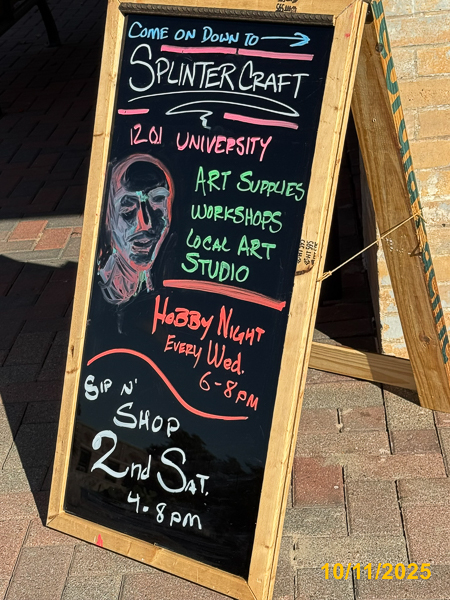 COME ON DOWN TO →
SPLINTER CRAFT
1201 UNIVERSITY
ART SUPPLIES
WORKSHOPS
LOCAL ART
STUDIO
HOBBY NIGHT
EVERY WED.
6-8PM
SIP N'
SHOP
2nd SAT.
4-8PM
10/11/2025